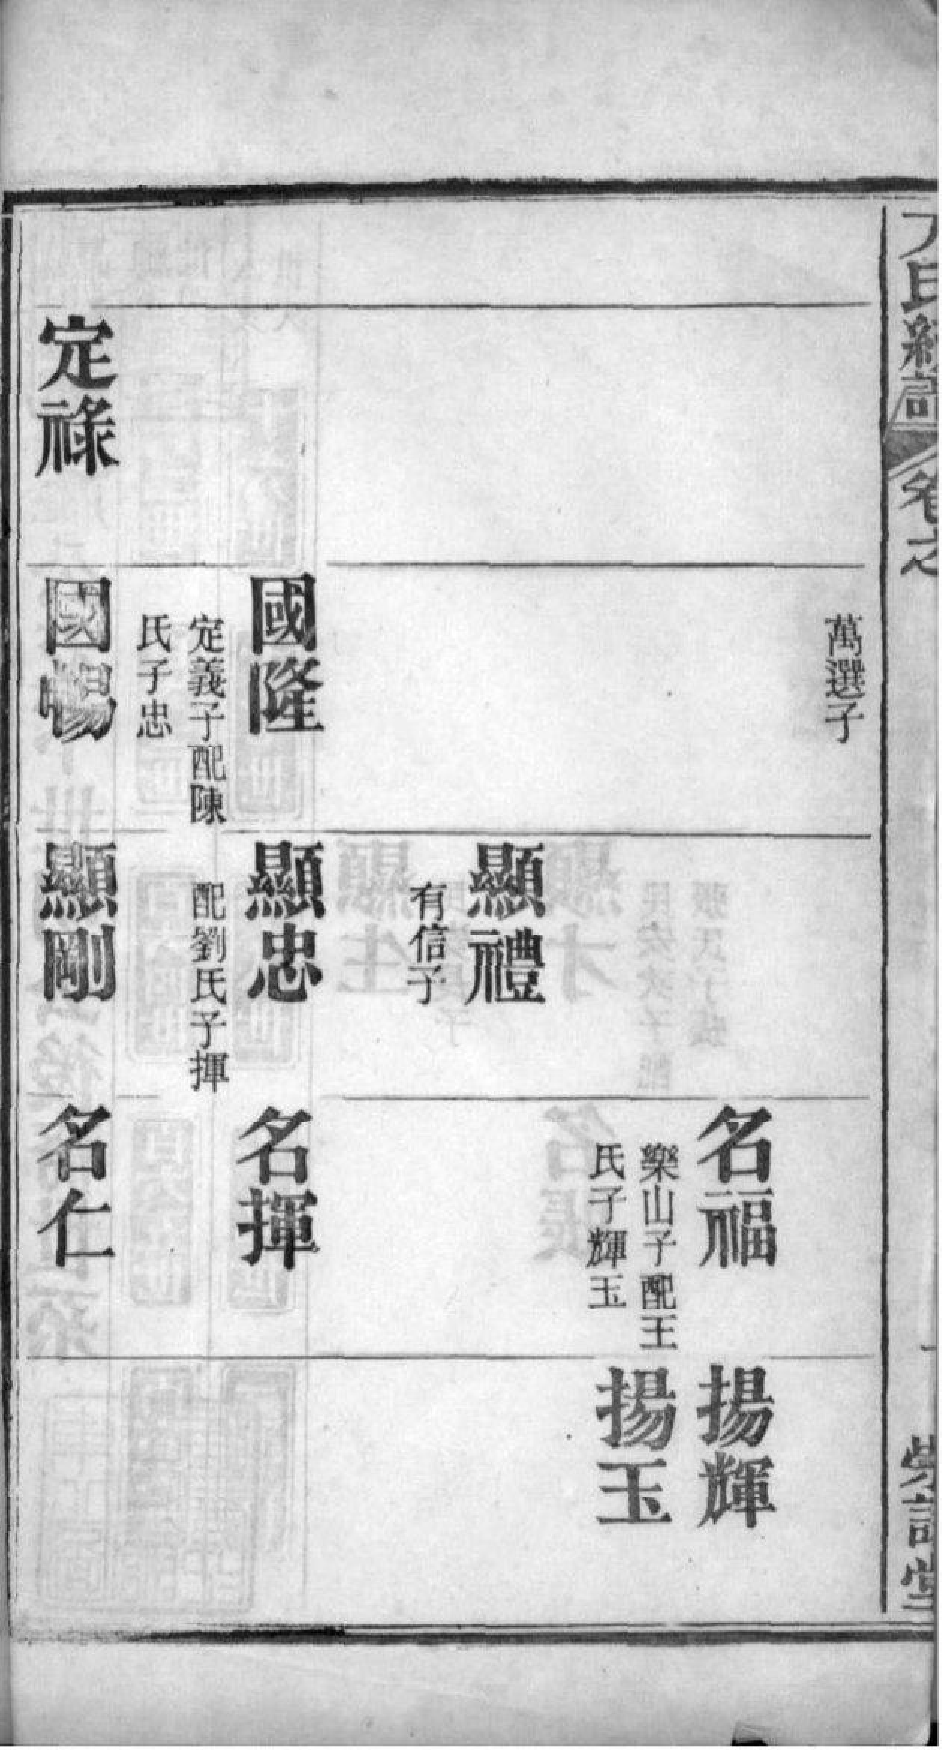 萬選子
國隆
定義子配陳
氏子忠
定祿
國暢
顯禮
有信子
顯忠
配劉氏子揮
顯剛
名福
樂山子配王
氏子輝玉
名揮
名仁
揚輝
揚玉